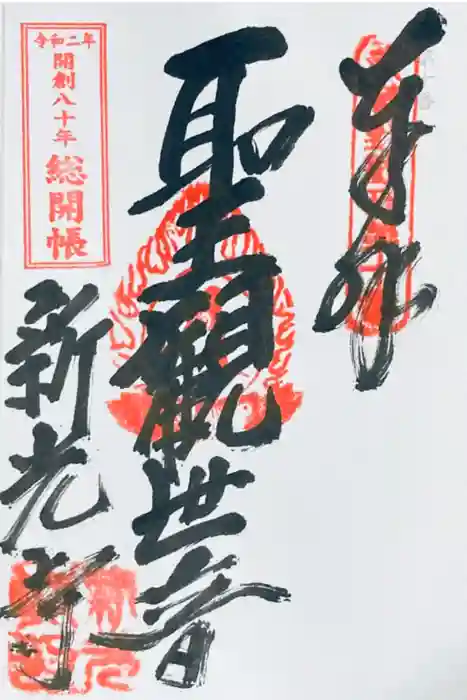 奉拝
聖観世音
令和二年
開創八十年
総開帳
新光寺